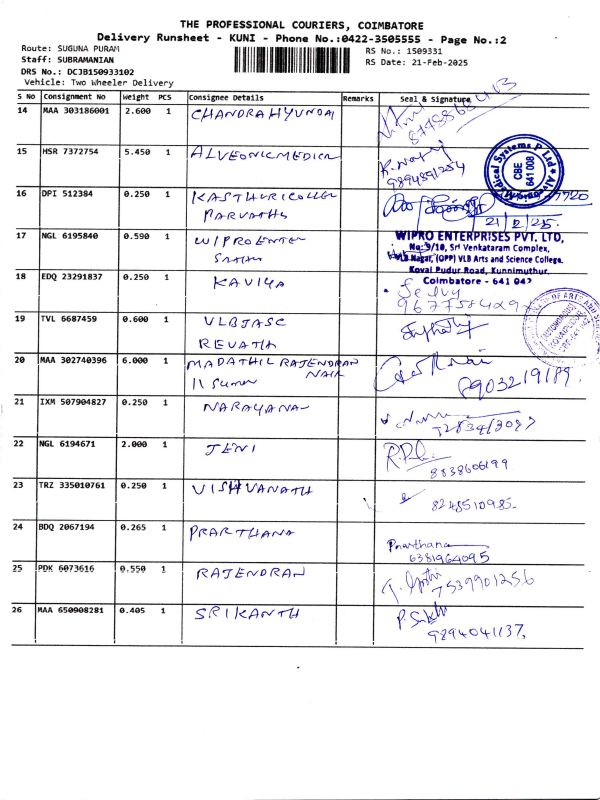 THE PROFESSIONAL COURIERS, COIMBATORE
Delivery Runsheet - KUNI - Phone No.:0422-3505555 - Page No.:2
Route: SUGUNA PURAM
RS No.: 1509331
Staff: SUBRAMANIAN
RS Date: 21-Feb-2025
DRS No.: DCJB150933102
Vehicle: Two Wheeler Delivery
S No Consignment No Weight PCS Consignee Details Remarks Seal & Signature
14 MAA 303186001 2.600 1 CHANDRA HYUNDAI
15 HSR 7372754 5.450 1 ALVEONICMEDICAL
9894891254
Medical Systems P Ltd
CBE
641 008
16 DPI 512384 0.250 1 KASTHURI COLLEGE
PARVATHY
21/2/25.
17 NGL 6195840 0.590 1 WIPRO ENTER
WIPRO ENTERPRISES PVT. LTD,
No:9/10, Sri Venkataram Complex,
VLB Nagar, (OPP) VLB Arts and Science College.
Koval Pudur Road, Kunnimuthur,
Coimbatore - 641 042
18 EDQ 23291837 0.250 1 KAVIYA
Selvy
19 TVL 6687459 0.600 1 VLBJASC
REVATHI
20 MAA 302740396 6.000 1 MADATHIL RAJENDRAN
NAIR
8903219189.
21 IXM 507904827 0.250 1 NARAYANA
22 NGL 6194671 2.000 1 JENI
8838606199
23 TRZ 335010761 0.250 1 VISHVANATH
8248510985.
24 BDQ 2067194 0.265 1 PRARTHANA
Prarthana
6381964095
25 PDK 6073616 0.550 1 RAJENDRAN
7539901256
26 MAA 650908281 0.405 1 SRIKANTH
9894041137,